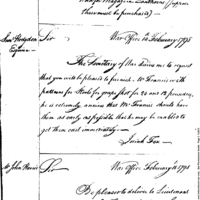 there must be purchased) —
Sam Hodgdon
Esquire
Sir
War Office 10 February 1795
The Secretary of War desires me to request
that you will be pleased to furnish Mr Francis with
patterns for Stools for grape shot for 24 and 12 pounders,
he is extremely anxious that Mr Francis should have
them as early as possible that he may be enabled to
get them cast immediately —
Josiah Fox
Mr John Harris
Sir
War Office February 10 1795
Be pleased to deliver to Lieutenant